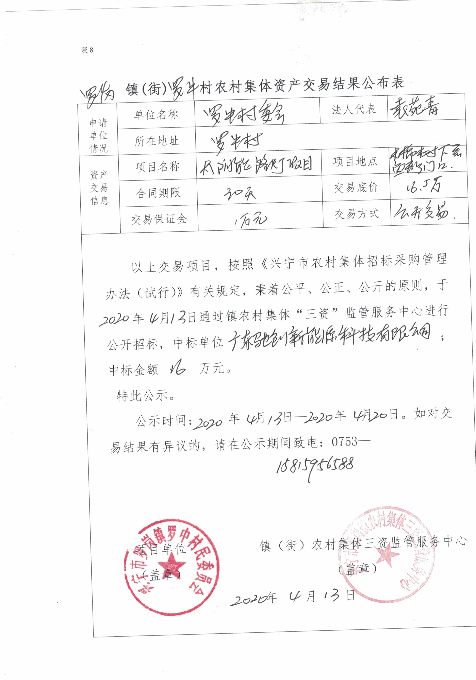 表8
罗岗镇(街)罗中村农村集体资产交易结果公布表
申请单位情况 单位名称 罗中村委会 法人代表 袁苑青
所在地址 罗中村
资产交易信息 项目名称 太阳能路灯项目 项目地点
合同期限 30天 交易底价 16.5万
交易保证会 1万元 交易方式 公开交易
以上交易项目，按照《兴宁市农村集体招标采购管理
办法（试行）》有关规定，秉着公平、公正、公开的原则，于
2020年4月13日通过镇农村集体“三资”监管服务中心进行
公开招标，中标单位广东驰创新能源科技有限公司；
中标金额 16 万元。
特此公示。
公示时间：2020年4月13日—2020年4月20日。如对交
易结果有异议的，请在公示期间致电：0753—
15815956588
项目单位 镇（街）农村集体三资监管服务中心
（盖章） （盖章）
兴宁市罗岗镇罗中村民委员会
2020年4月13日